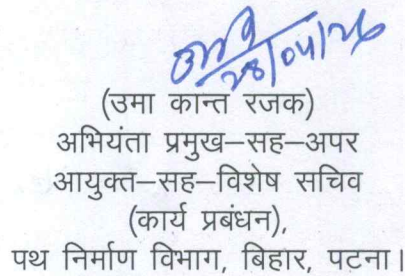 28/04/26
(उमा कान्त रजक)
अभियंता प्रमुख–सह–अपर
आयुक्त–सह–विशेष सचिव
(कार्य प्रबंधन),
पथ निर्माण विभाग, बिहार, पटना।